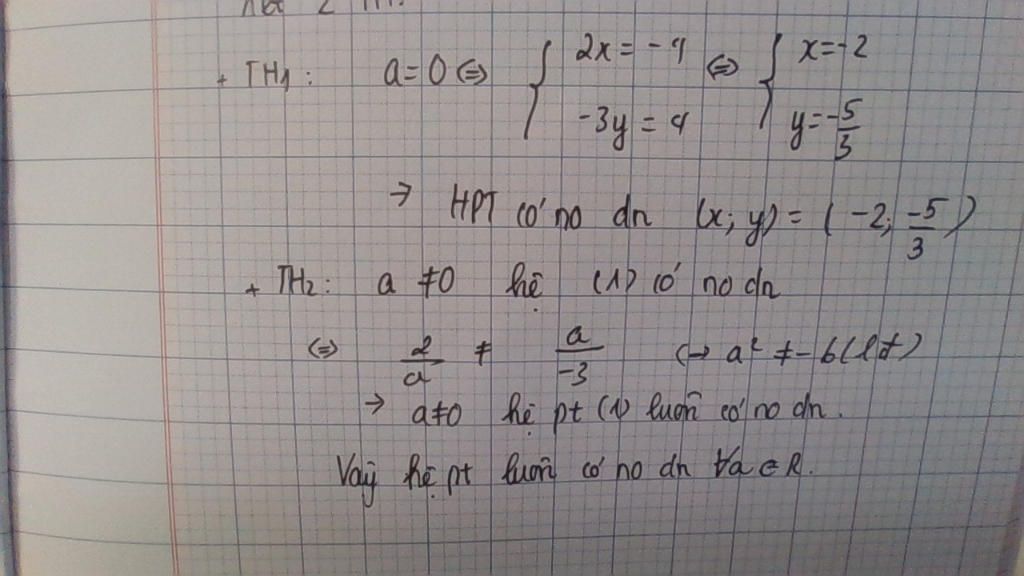 + TH1: a = 0 <=> { 2x = -4 <=> { x = -2
-3y = 4 y = -5/3
→ HPT có no dn (x; y) = ( -2; -5/3 )
+ TH2: a ≠ 0 hệ (1) có no dn
<=> 2/a ≠ a/-3 <-> a² ≠ -6 (lđ)
→ a ≠ 0 hệ pt (1) luôn có no dn.
Vậy hệ pt luôn có no dn ∀a ∈ R.